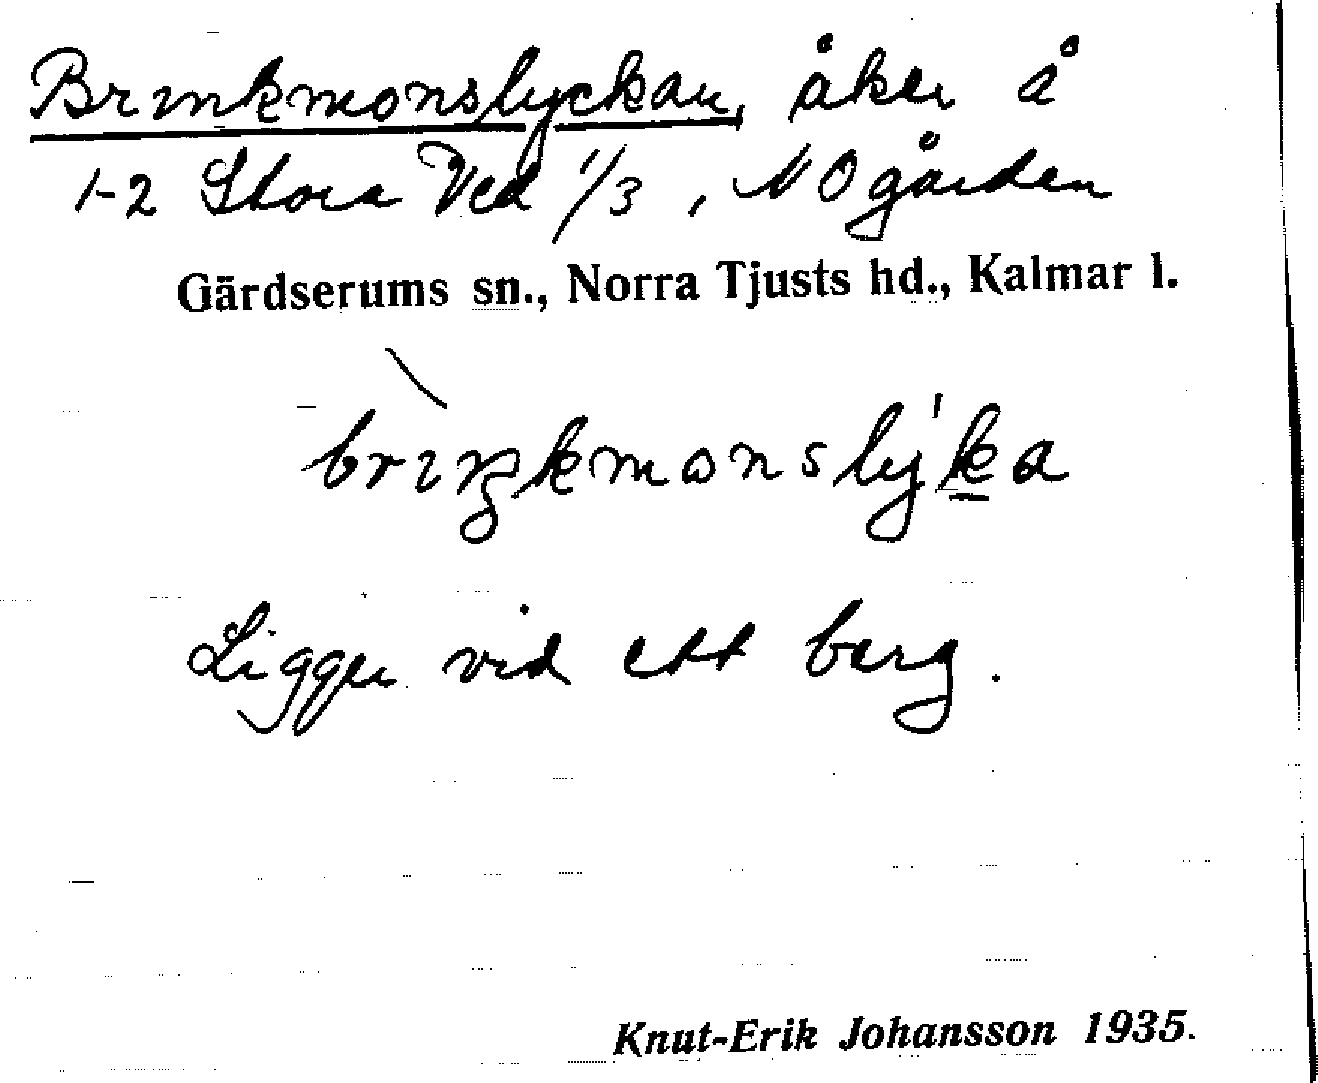 Brinkmonslyckan, åker å
1-2 Stora Ved 1/3, NOgården
Gärdserums sn., Norra Tjusts hd., Kalmar l.
brìŋkmonsly'ka
Ligger vid ett berg.
Knut-Erik Johansson 1935.